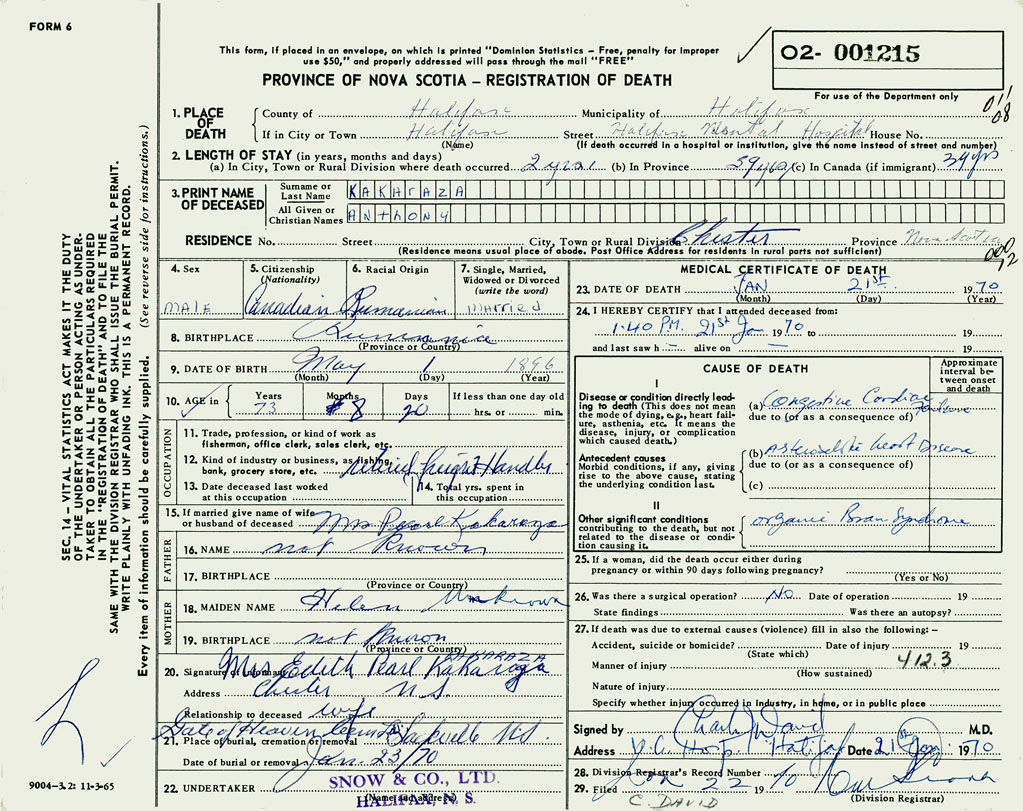 FORM 6
This form, if placed in an envelope, on which is printed "Dominion Statistics — Free, penalty for improper
use $50," and properly addressed will pass through the mail "FREE"
O2- 001215
PROVINCE OF NOVA SCOTIA — REGISTRATION OF DEATH
For use of the Department only
011
08
1. PLACE OF DEATH
County of Halifax Municipality of Halifax
If in City or Town Halifax Street Halifax Mental Hospital House No.
(Name) (If death occurred in a hospital or institution, give the name instead of street and number)
2. LENGTH OF STAY (in years, months and days)
(a) In City, Town or Rural Division where death occurred 2 years (b) In Province 39 yrs (c) In Canada (if immigrant) 39 yrs
3. PRINT NAME OF DECEASED
Surname or Last Name KAKARAZA
All Given or Christian Names ANthONy
RESIDENCE No. Street City, Town or Rural Division Chester Province Nova Scotia
(Residence means usual place of abode. Post Office Address for residents in rural parts not sufficient)
000
12
SEC. 14 – VITAL STATISTICS ACT MAKES IT THE DUTY
OF THE UNDERTAKER OR PERSON ACTING AS UNDER-
TAKER TO OBTAIN ALL THE PARTICULARS REQUIRED
IN THE "REGISTRATION OF DEATH" AND TO FILE THE
SAME WITH THE DIVISION REGISTRAR WHO SHALL ISSUE THE BURIAL PERMIT.
WRITE PLAINLY WITH UNFADING INK. THIS IS A PERMANENT RECORD.
Every item of information should be carefully supplied. (See reverse side for instructions.)
4. Sex MALE
5. Citizenship (Nationality) Canadian
6. Racial Origin Rumanian
7. Single, Married, Widowed or Divorced (write the word) Married
8. BIRTHPLACE Rumania
(Province or Country)
9. DATE OF BIRTH May 1 1896
(Month) (Day) (Year)
10. AGE in Years 73 Months 8 Days 20 If less than one day old hrs. or min.
OCCUPATION
11. Trade, profession, or kind of work as
fisherman, office clerk, sales clerk, etc.
12. Kind of industry or business, as fishing,
bank, grocery store, etc. retired freight Handler
13. Date deceased last worked
at this occupation
14. Total yrs. spent in
this occupation
15. If married give name of wife
or husband of deceased Mrs Pearl Kakaraza
FATHER
16. NAME not known
17. BIRTHPLACE
(Province or Country)
MOTHER
18. MAIDEN NAME Helen Unknown
19. BIRTHPLACE not known
(Province or Country)
KAKARAZA
20. Signature of informant Mrs Edith Pearl Kakaraza
Address Chester N.S.
Relationship to deceased wife
Gate of Heaven Sackville N.S.
21. Place of burial, cremation or removal
Date of burial or removal Jan. 23/70
22. UNDERTAKER SNOW & CO., LTD.
(Name and address)
HALIFAX, N. S.
MEDICAL CERTIFICATE OF DEATH
23. DATE OF DEATH JAN 21st 1970
(Month) (Day) (Year)
24. I HEREBY CERTIFY that I attended deceased from:
1:40 P.M. 21st Jan 1970 to 19
and last saw h alive on 19
CAUSE OF DEATH
Approximate interval between onset and death
I
Disease or condition directly leading to death (This does not mean the mode of dying, e.g., heart failure, asthenia, etc. It means the disease, injury, or complication which caused death.)
(a) Congestive Cardiac Failure
due to (or as a consequence of)
Antecedent causes
Morbid conditions, if any, giving rise to the above cause, stating the underlying condition last.
(b) Heart Disease
due to (or as a consequence of)
(c)
II
Other significant conditions
contributing to the death, but not related to the disease or condition causing it.
Organic Brain Syndrome
25. If a woman, did the death occur either during
pregnancy or within 90 days following pregnancy?
(Yes or No)
26. Was there a surgical operation? No Date of operation 19
State findings Was there an autopsy?
27. If death was due to external causes (violence) fill in also the following: –
Accident, suicide or homicide? Date of injury 19
(State which)
412.3
Manner of injury
(How sustained)
Nature of injury
Specify whether injury occurred in industry, in home, or in public place
Signed by Charles David M.D.
Address Hosp. Halifax Date 21st Jan 1970
28. Division Registrar's Record Number
29. Filed Jan 22 1970
(Division Registrar)
C. DAVID
9004–3.2: 11-3-65